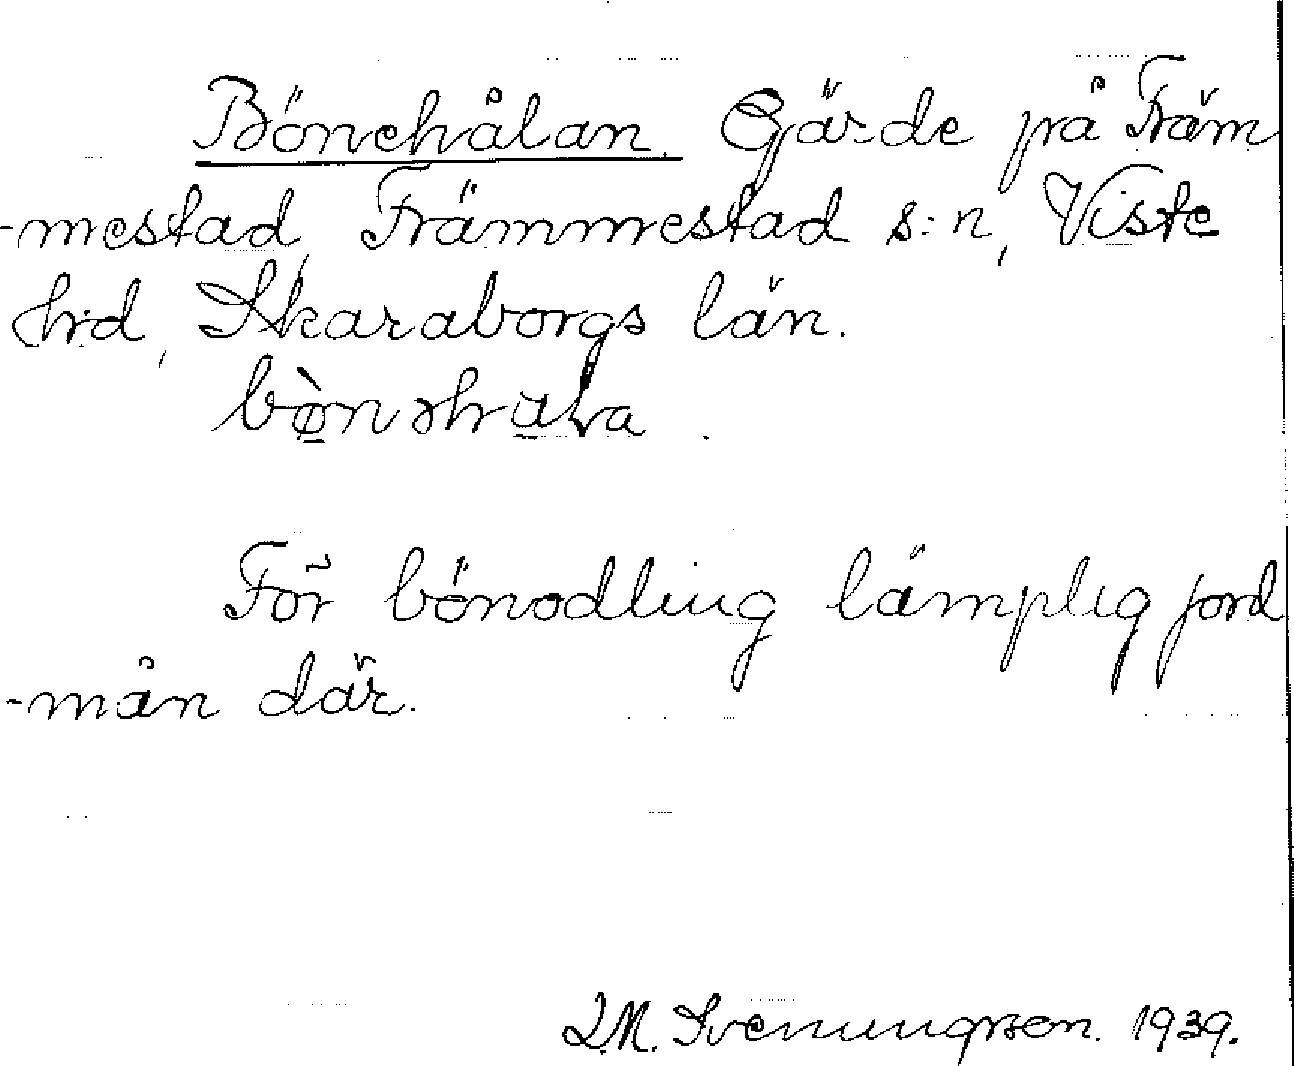 Bönehålan. Gärde på Främ
-mestad, Främmestad s:n, Viste
hd, Skaraborgs län.

För bönodling lämplig jord
-mån där.
D.M. Svenungsson. 1939.